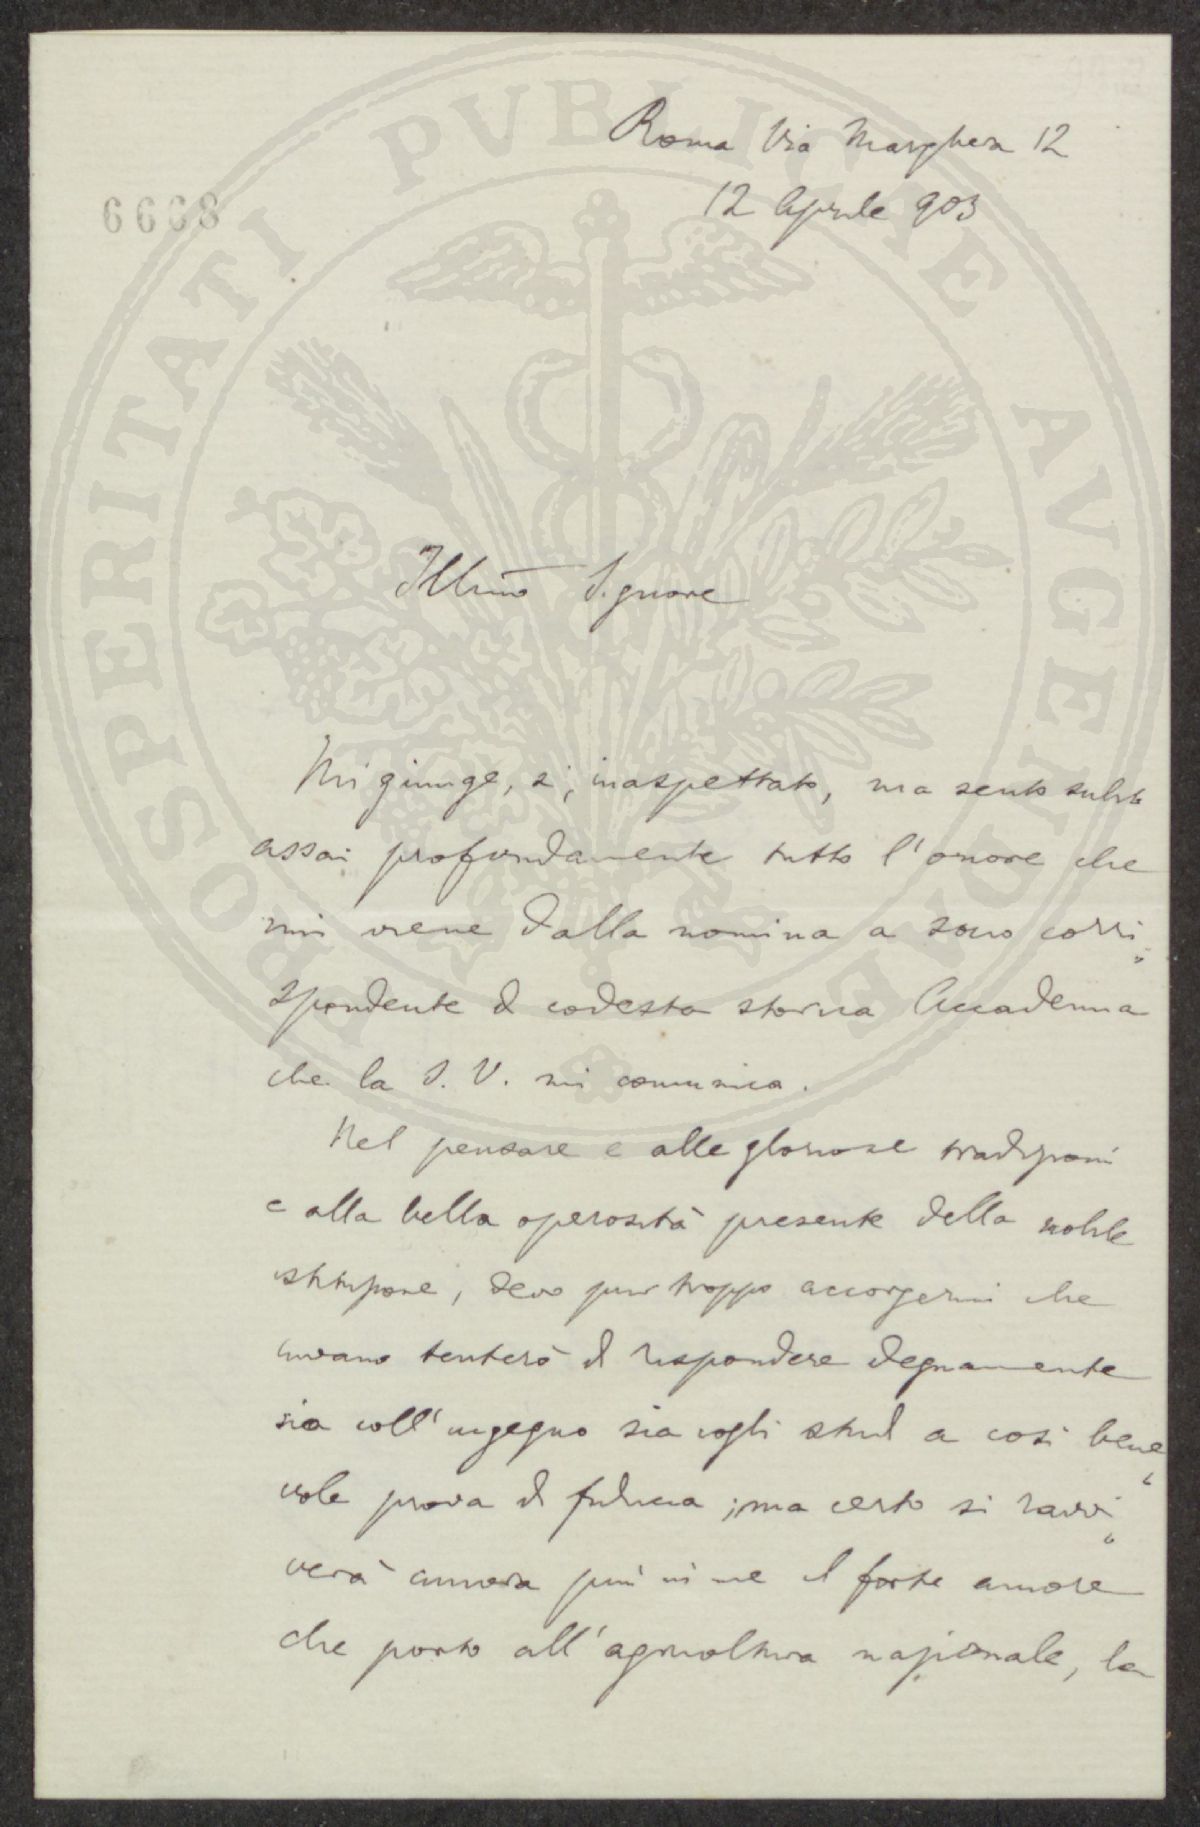 Roma Via Marghera 12
12 Aprile 903
6668
PROSPERITATI PVBLICAE AVGENDAE
Illmo Signore
Mi giunge, sì, inaspettato, ma sento subito
assai profondamente tutto l'onore che
mi viene dalla nomina a socio corri„
spondente di codesta storica Accademia
che la S. V. mi comunica.
Nel pensare e alle gloriose tradizioni
e alla bella operosità presente della nobile
istituzione, devo pur troppo accorgermi che
invano tenterò di rispondere degnamente
sia coll'ingegno sia cogli studi a così bene„
vole prova di fiducia; ma certo si ravvi„
verà ancora più in me il forte amore
che porto all'agricoltura nazionale, la